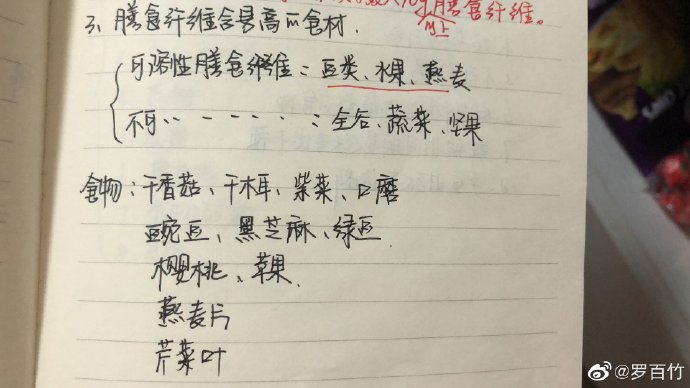 膳食纤维。
以上
3、膳食纤维含量高的食材.
可溶性膳食纤维：豆类、水果、燕麦
不可〃- - - - -：全谷、蔬菜、坚果
食物：干香菇、干木耳、紫菜、口磨
豌豆、黑芝麻、绿豆
樱桃、苹果.
燕麦片
芹菜叶
@罗百竹